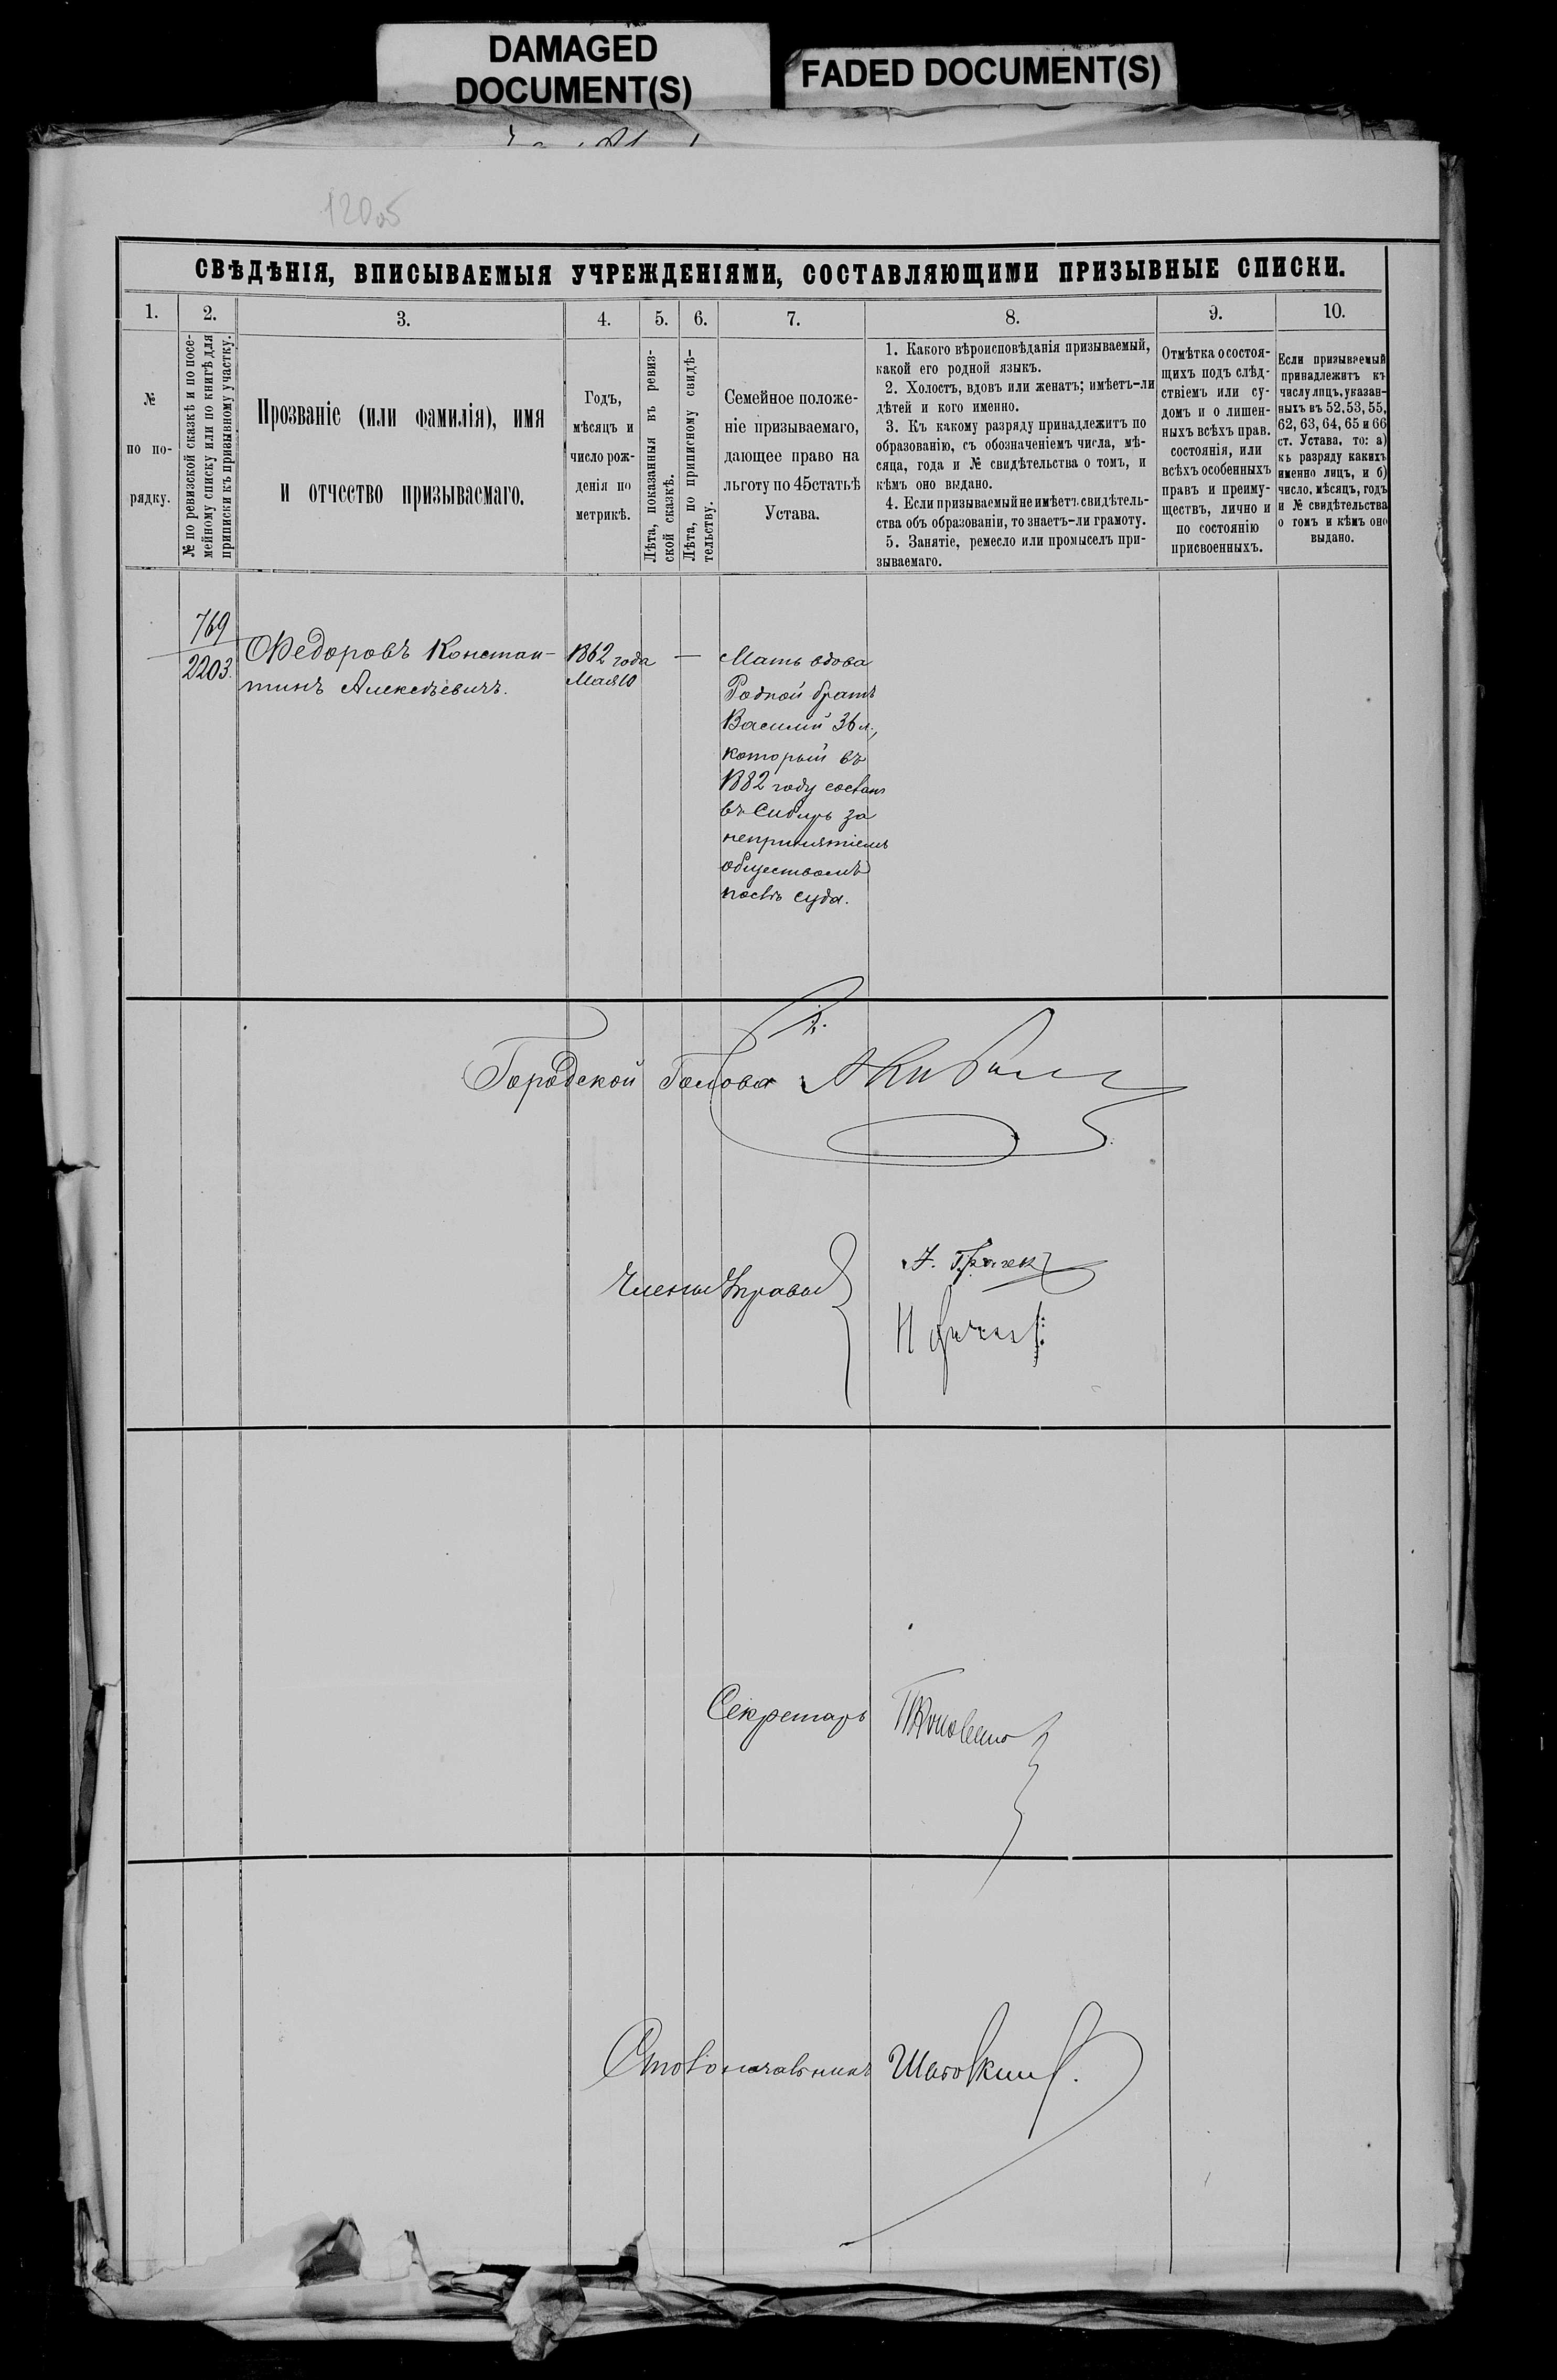 DAMAGED
DOCUMENT(S)
FADED DOCUMENT(S)
120об
СВѢДѢНІЯ, ВПИСЫВАЕМЫЯ УЧРЕЖДЕНІЯМИ, СОСТАВЛЯЮЩИМИ ПРИЗЫВНЫЕ СПИСКИ.
1.
№
по по-
рядку.
2.
№ по ревизской сказкѣ и по посе-
мейному списку или по книгѣ для
приписки къ призывному участку.
3.
Прозваніе (или фамилія), имя
и отчество призываемаго.
4.
Годъ,
мѣсяцъ и
число рож-
денія по
метрикѣ.
5.
Лѣта, показанныя въ ревиз-
ской сказкѣ.
6.
Лѣта, по приписному свидѣ-
тельству.
7.
Семейное положе-
ніе призываемаго,
дающее право на
льготу по 45статьѣ
Устава.
8.
1. Какого вѣроисповѣданія призываемый,
какой его родной языкъ.
2. Холостъ, вдовъ или женатъ; имѣетъ-ли
дѣтей и кого именно.
3. Къ какому разряду принадлежитъ по
образованію, съ обозначеніемъ числа, мѣ-
сяца, года и № свидѣтельства о томъ, и
кѣмъ оно выдано.
4. Если призываемый не имѣетъ свидѣтель-
ства объ образованіи, то знаетъ-ли грамоту.
5. Занятіе, ремесло или промыселъ при-
зываемаго.
9.
Отмѣтка о состоя-
щихъ подъ слѣд-
ствіемъ или су-
домъ и о лишен-
ныхъ всѣхъ прав.
состоянія, или
всѣхъ особенныхъ
правъ и преиму-
ществъ, лично и
по состоянію
присвоенныхъ.
10.
Если призываемый
принадлежитъ къ
числу лицъ, указан-
ныхъ въ 52, 53, 55,
62, 63, 64, 65 и 66
ст. Устава, то: а)
къ разряду какихъ
именно лицъ, и б)
число, мѣсяцъ, годъ
и № свидѣтельства
о томъ и кѣмъ оно
выдано.
769
2203.
Федоровъ Констан-
тинъ Алексѣевичъ.
1862 года
Мая 10
—
Мать вдова
Родной братъ
Василий 36 л.,
который въ
1882 году сосланъ
въ Сибирь за
непринятіемъ
обществомъ
послѣ суда.
Городской Голова
Члены Управы
Секретарь
Столоначальникъ